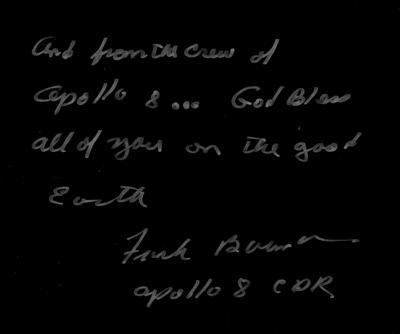 And from the crew of
Apollo 8 ... God Bless
all of you on the good
Earth
Frank Borman
Apollo 8 CDR